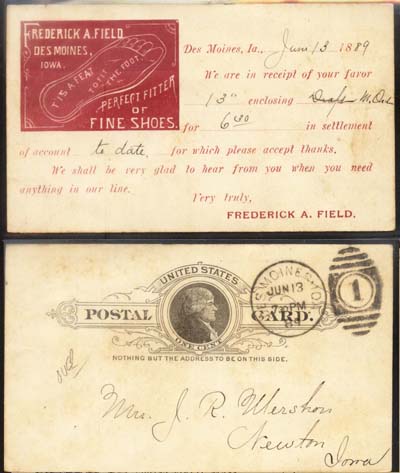 FREDERICK A. FIELD
DES MOINES,
IOWA.
'TIS A FEAT
TO FIT
THE FOOT.
PERFECT FITTER
OF
FINE SHOES.
Des Moines, Ia., June 13 1889
We are in receipt of your favor
13" enclosing Draft M. Ord
for 6 00 in settlement
of account to date, for which please accept thanks.
We shall be very glad to hear from you when you need
anything in our line.
Very truly,
FREDERICK A. FIELD.
UNITED STATES
POSTAL CARD.
ONE CENT
NOTHING BUT THE ADDRESS TO BE ON THIS SIDE.
DES MOINES IOWA
JUN 13
7 PM
89
1
Mrs. J. R. Wershon
Newton
Iowa